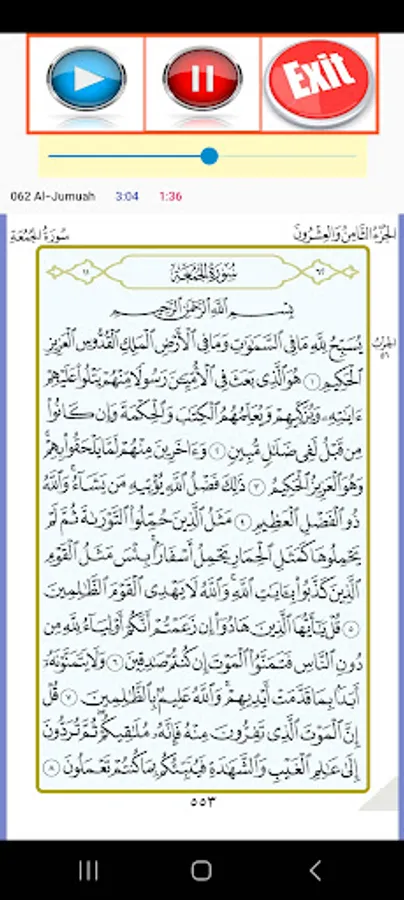 Exit
062 Al-Jumuah 3:04 1:36
الجزء الثامن والعشرون سورة الجمعة
سُورَةُ الجُمُعَةِ
بِسْمِ اللَّهِ الرَّحْمَٰنِ الرَّحِيمِ
يُسَبِّحُ لِلَّهِ مَا فِي السَّمَٰوَٰتِ وَمَا فِي الْأَرْضِ الْمَلِكِ الْقُدُّوسِ الْعَزِيزِ
الْحَكِيمِ ١ هُوَ الَّذِي بَعَثَ فِي الْأُمِّيِّينَ رَسُولًا مِنْهُمْ يَتْلُوا عَلَيْهِمْ
ءَايَٰتِهِ وَيُزَكِّيهِمْ وَيُعَلِّمُهُمُ الْكِتَٰبَ وَالْحِكْمَةَ وَإِن كَانُوا
مِن قَبْلُ لَفِي ضَلَٰلٍ مُبِينٍ ٢ وَءَاخَرِينَ مِنْهُمْ لَمَّا يَلْحَقُوا بِهِمْ
وَهُوَ الْعَزِيزُ الْحَكِيمُ ٣ ذَٰلِكَ فَضْلُ اللَّهِ يُؤْتِيهِ مَن يَشَاءُ وَاللَّهُ
ذُو الْفَضْلِ الْعَظِيمِ ٤ مَثَلُ الَّذِينَ حُمِّلُوا التَّوْرَىٰةَ ثُمَّ لَمْ
يَحْمِلُوهَا كَمَثَلِ الْحِمَارِ يَحْمِلُ أَسْفَارًا بِئْسَ مَثَلُ الْقَوْمِ
الَّذِينَ كَذَّبُوا بِـَٔايَٰتِ اللَّهِ وَاللَّهُ لَا يَهْدِي الْقَوْمَ الظَّٰلِمِينَ
٥ قُلْ يَٰٓأَيُّهَا الَّذِينَ هَادُوا إِن زَعَمْتُمْ أَنَّكُمْ أَوْلِيَاءُ لِلَّهِ مِن
دُونِ النَّاسِ فَتَمَنَّوُا الْمَوْتَ إِن كُنتُمْ صَٰدِقِينَ ٦ وَلَا يَتَمَنَّوْنَهُ
أَبَدًا بِمَا قَدَّمَتْ أَيْدِيهِمْ وَاللَّهُ عَلِيمٌ بِالظَّٰلِمِينَ ٧ قُلْ
إِنَّ الْمَوْتَ الَّذِي تَفِرُّونَ مِنْهُ فَإِنَّهُ مُلَٰقِيكُمْ ثُمَّ تُرَدُّونَ
إِلَىٰ عَٰلِمِ الْغَيْبِ وَالشَّهَٰدَةِ فَيُنَبِّئُكُم بِمَا كُنتُمْ تَعْمَلُونَ ٨
٥٥٣